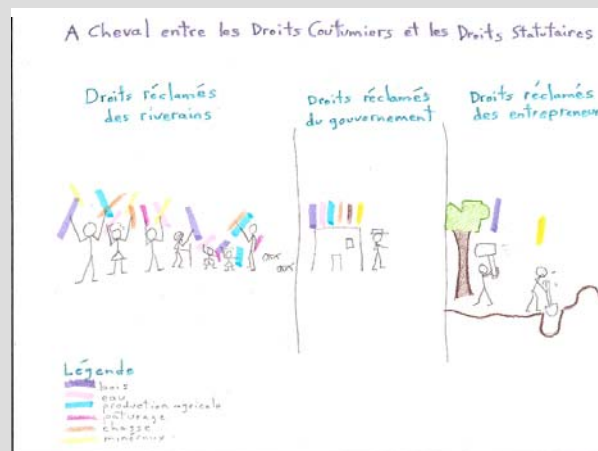 A Cheval entre les Droits Coutumiers et les Droits Statutaires
Droits réclamés
des riverains
Droits réclamés
du gouvernement
Droits réclamés
des entrepreneu
Légende
bois
eau
production agricole
pâturage
chasse
minéraux